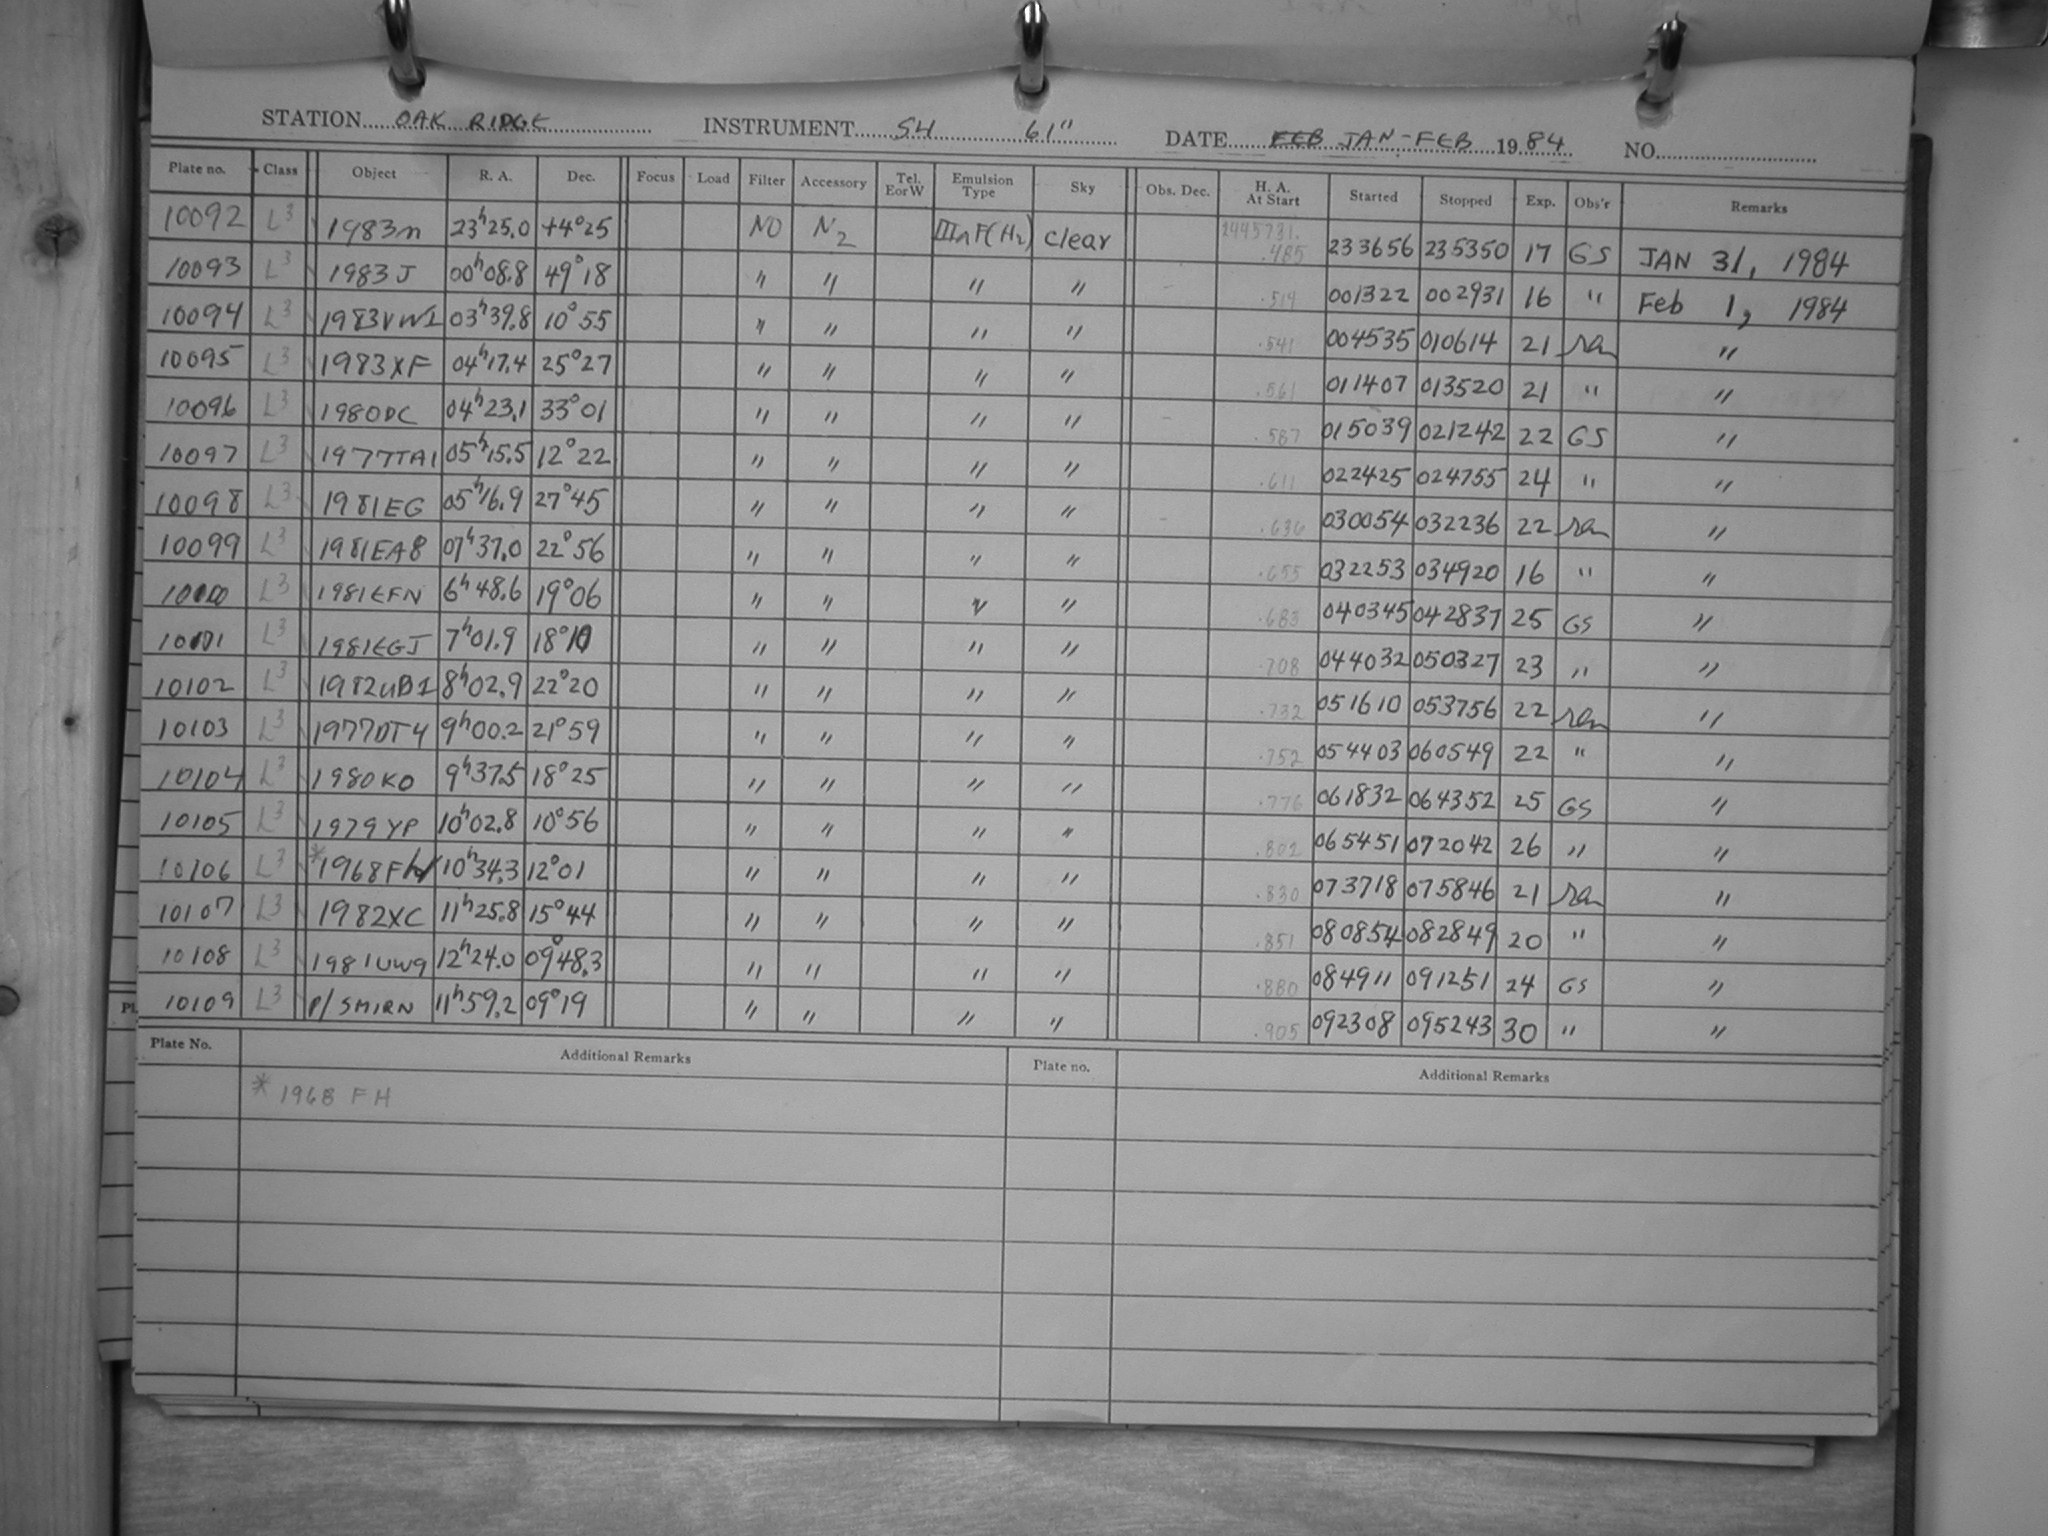 STATION OAK RIDGE INSTRUMENT SH 61" DATE FEB JAN-FEB 1984 NO.
Plate no. Class Object R. A. Dec. Focus Load Filter Accessory Tel. E or W Emulsion Type Sky Obs. Dec. H. A. At Start Started Stopped Exp. Obs'r Remarks
10092 L3 1983n 23h25.0 +4°25 NO N2 IIIaF(H2) clear 2445731. .485 233656 235350 17 GS JAN 31, 1984
10093 L3 1983J 00h08.8 49°18 " " " " .519 001322 002931 16 " Feb 1, 1984
10094 L3 1983VW1 03h39.8 10°55 " " " " .541 004535 010614 21 ram "
10095 L3 1983XF 04h17.4 25°27 " " " " .561 011407 013520 21 " "
10096 L3 1980DC 04h23.1 33°01 " " " " .587 015039 021242 22 GS "
10097 L3 1977TA1 05h15.5 12°22 " " " " .611 022425 024755 24 " "
10098 L3 1981EG 05h16.9 27°45 " " " " .636 030054 032236 22 ram "
10099 L3 1981EA8 07h37.0 22°56 " " " " .655 032253 034920 16 " "
10100 L3 1981EFN 6h48.6 19°06 " " " " .683 040345 042837 25 GS "
10101 L3 1981EGJ 7h01.9 18°10 " " " " .708 044032 050327 23 " "
10102 L3 1982UB1 8h02.9 22°20 " " " " .732 051610 053756 22 ram "
10103 L3 1977DT4 9h00.2 21°59 " " " " .752 054403 060549 22 " "
10104 L3 1980KO 9h37.5 18°25 " " " " .776 061832 064352 25 GS "
10105 L3 1979YP 10h02.8 10°56 " " " " .802 065451 072042 26 " "
10106 L3 *1968FH 10h34.3 12°01 " " " " .830 073718 075846 21 ram "
10107 L3 1982XC 11h25.8 15°44 " " " " .851 080854 082849 20 " "
10108 L3 1981UW9 12h24.0 09°48.3 " " " " .880 084911 091251 24 GS "
10109 L3 P/SMIRN 11h59.2 09°19 " " " " .905 092308 095243 30 " "
Plate No. Additional Remarks Plate no. Additional Remarks
* 1968 FH